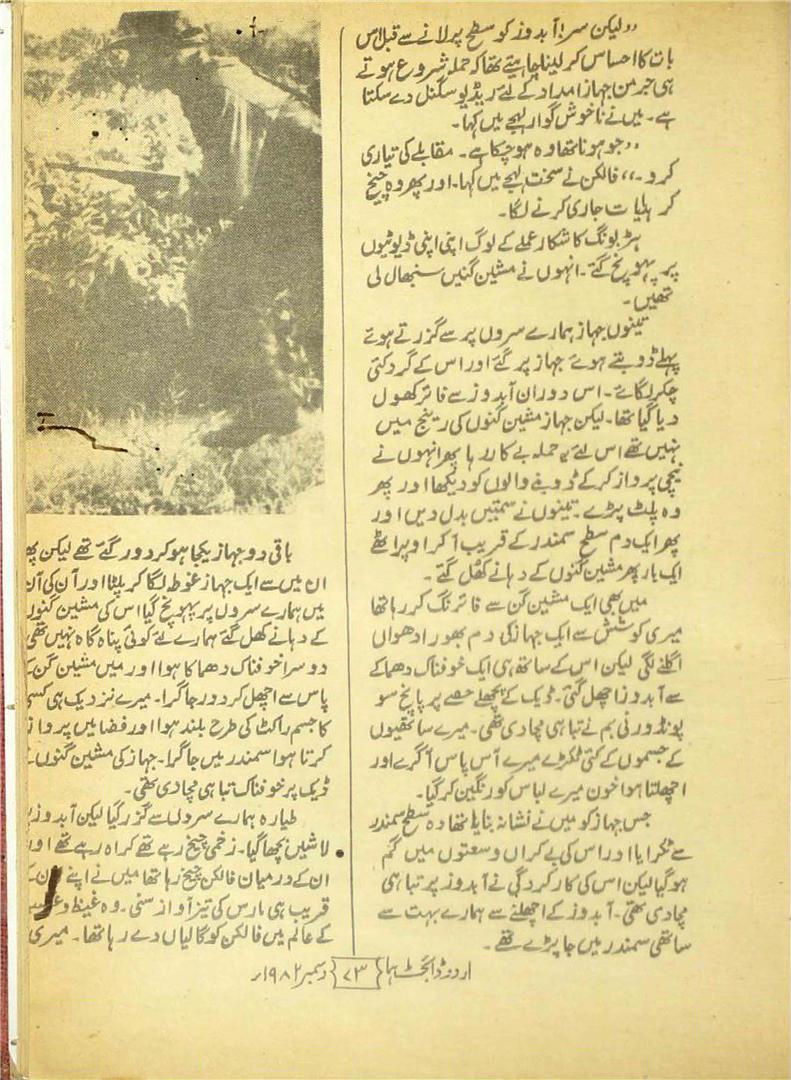 ”لیکن سر! آبدوز کو سطح پر لانے سے قبل اس
بات کا احساس کر لینا چاہیئے تھا کہ حملہ شروع ہوتے
ہی جرمن جہاز امداد کے لئے ریڈیو سگنل دے سکتا
ہے۔ میں نے ناخوش گوار لہجے میں کہا۔
”جو ہونا تھا وہ ہو چکا ہے۔ مقابلے کی تیاری
کرو۔“ فالکن نے سخت لہجے میں کہا۔ اور پھر وہ چیخ
کر ہدایات جاری کرنے لگا۔
ہڑبونگ کا شکار عملے کے لوگ اپنی اپنی ڈیوٹیوں
پر پہونچ گئے۔ انہوں نے مشین گنیں سنبھال لی
تھیں۔
تینوں جہاز ہمارے سروں پر سے گزرتے ہوئے
پہلے ڈوبتے ہوئے جہاز پر گئے اور اس کے گرد کئی
چکر لگائے۔ اس دوران آبدوز سے فائر کھول
دیا گیا تھا۔ لیکن جہاز مشین گنوں کی رینج میں
نہیں تھے اس لئے یہ حملہ بے کار رہا پھر انہوں نے
نیچی پرواز کر کے ڈوبنے والوں کو دیکھا اور پھر
وہ پلٹ پڑے۔ تینوں نے سمتیں بدل دیں اور
پھر ایک دم سطح سمندر کے قریب آ کر اوپر اٹھے
ایک بار پھر مشین گنوں کے دہانے کھل گئے۔
میں بھی ایک مشین گن سے فائرنگ کر رہا تھا
میری کوشش سے ایک جہاز کی دم بھورا دھواں
اگلنے لگی لیکن اس کے ساتھ ہی ایک خوفناک دھماکے
سے آبدوز اچھل گئی۔ ڈیک کے پچھلے حصے پر پانچ سو
پونڈ وزنی بم نے تباہی مچا دی تھی۔ میرے ساتھیوں
کے جسموں کے کئی ٹکڑے میرے آس پاس آ گرے اور
اچھلتا ہوا خون میرے لباس کو رنگین کر گیا۔
جس جہاز کو میں نے نشانہ بنایا تھا وہ سطح سمندر
سے ٹکرایا اور اس کی بے کراں وسعتوں میں گم
ہو گیا لیکن اس کی کارکردگی نے آبدوز پر تباہی
مچا دی تھی۔ آبدوز کے اچھلنے سے ہمارے بہت سے
ساتھی سمندر میں جا پڑے تھے۔
باقی دو جہاز یکجا ہو کر دور گئے تھے لیکن پھر
ان میں سے ایک جہاز غوطہ لگا کر پلٹا اور آن کی آن
میں ہمارے سروں پر پہونچ گیا اس کی مشین گنوں
کے دہانے کھل گئے ہمارے لئے کوئی پناہ گاہ نہیں تھی
دوسرا خوفناک دھماکا ہوا اور میں مشین گن کے
پاس سے اچھل کر دور جا گرا۔ میرے نزدیک ہی کسی
کا جسم راکٹ کی طرح بلند ہوا اور فضا میں پرواز
کرتا ہوا سمندر میں جا گرا۔ جہاز کی مشین گنوں نے
ڈیک پر خوفناک تباہی مچا دی تھی۔
طیارہ ہمارے سروں سے گزر گیا لیکن آبدوز پر
لاشیں بچھا گیا۔ زخمی چیخ رہے تھے کراہ رہے تھے اور
ان کے درمیان فالکن چیخ رہا تھا میں نے اپنے
قریب ہی بارس کی تیز آواز سنی۔ وہ غیظ و غضب
کے عالم میں فالکن کو گالیاں دے رہا تھا۔ میری
اردو ڈائجسٹ ہما {۷۳} دسمبر ۱۹۸۲ء